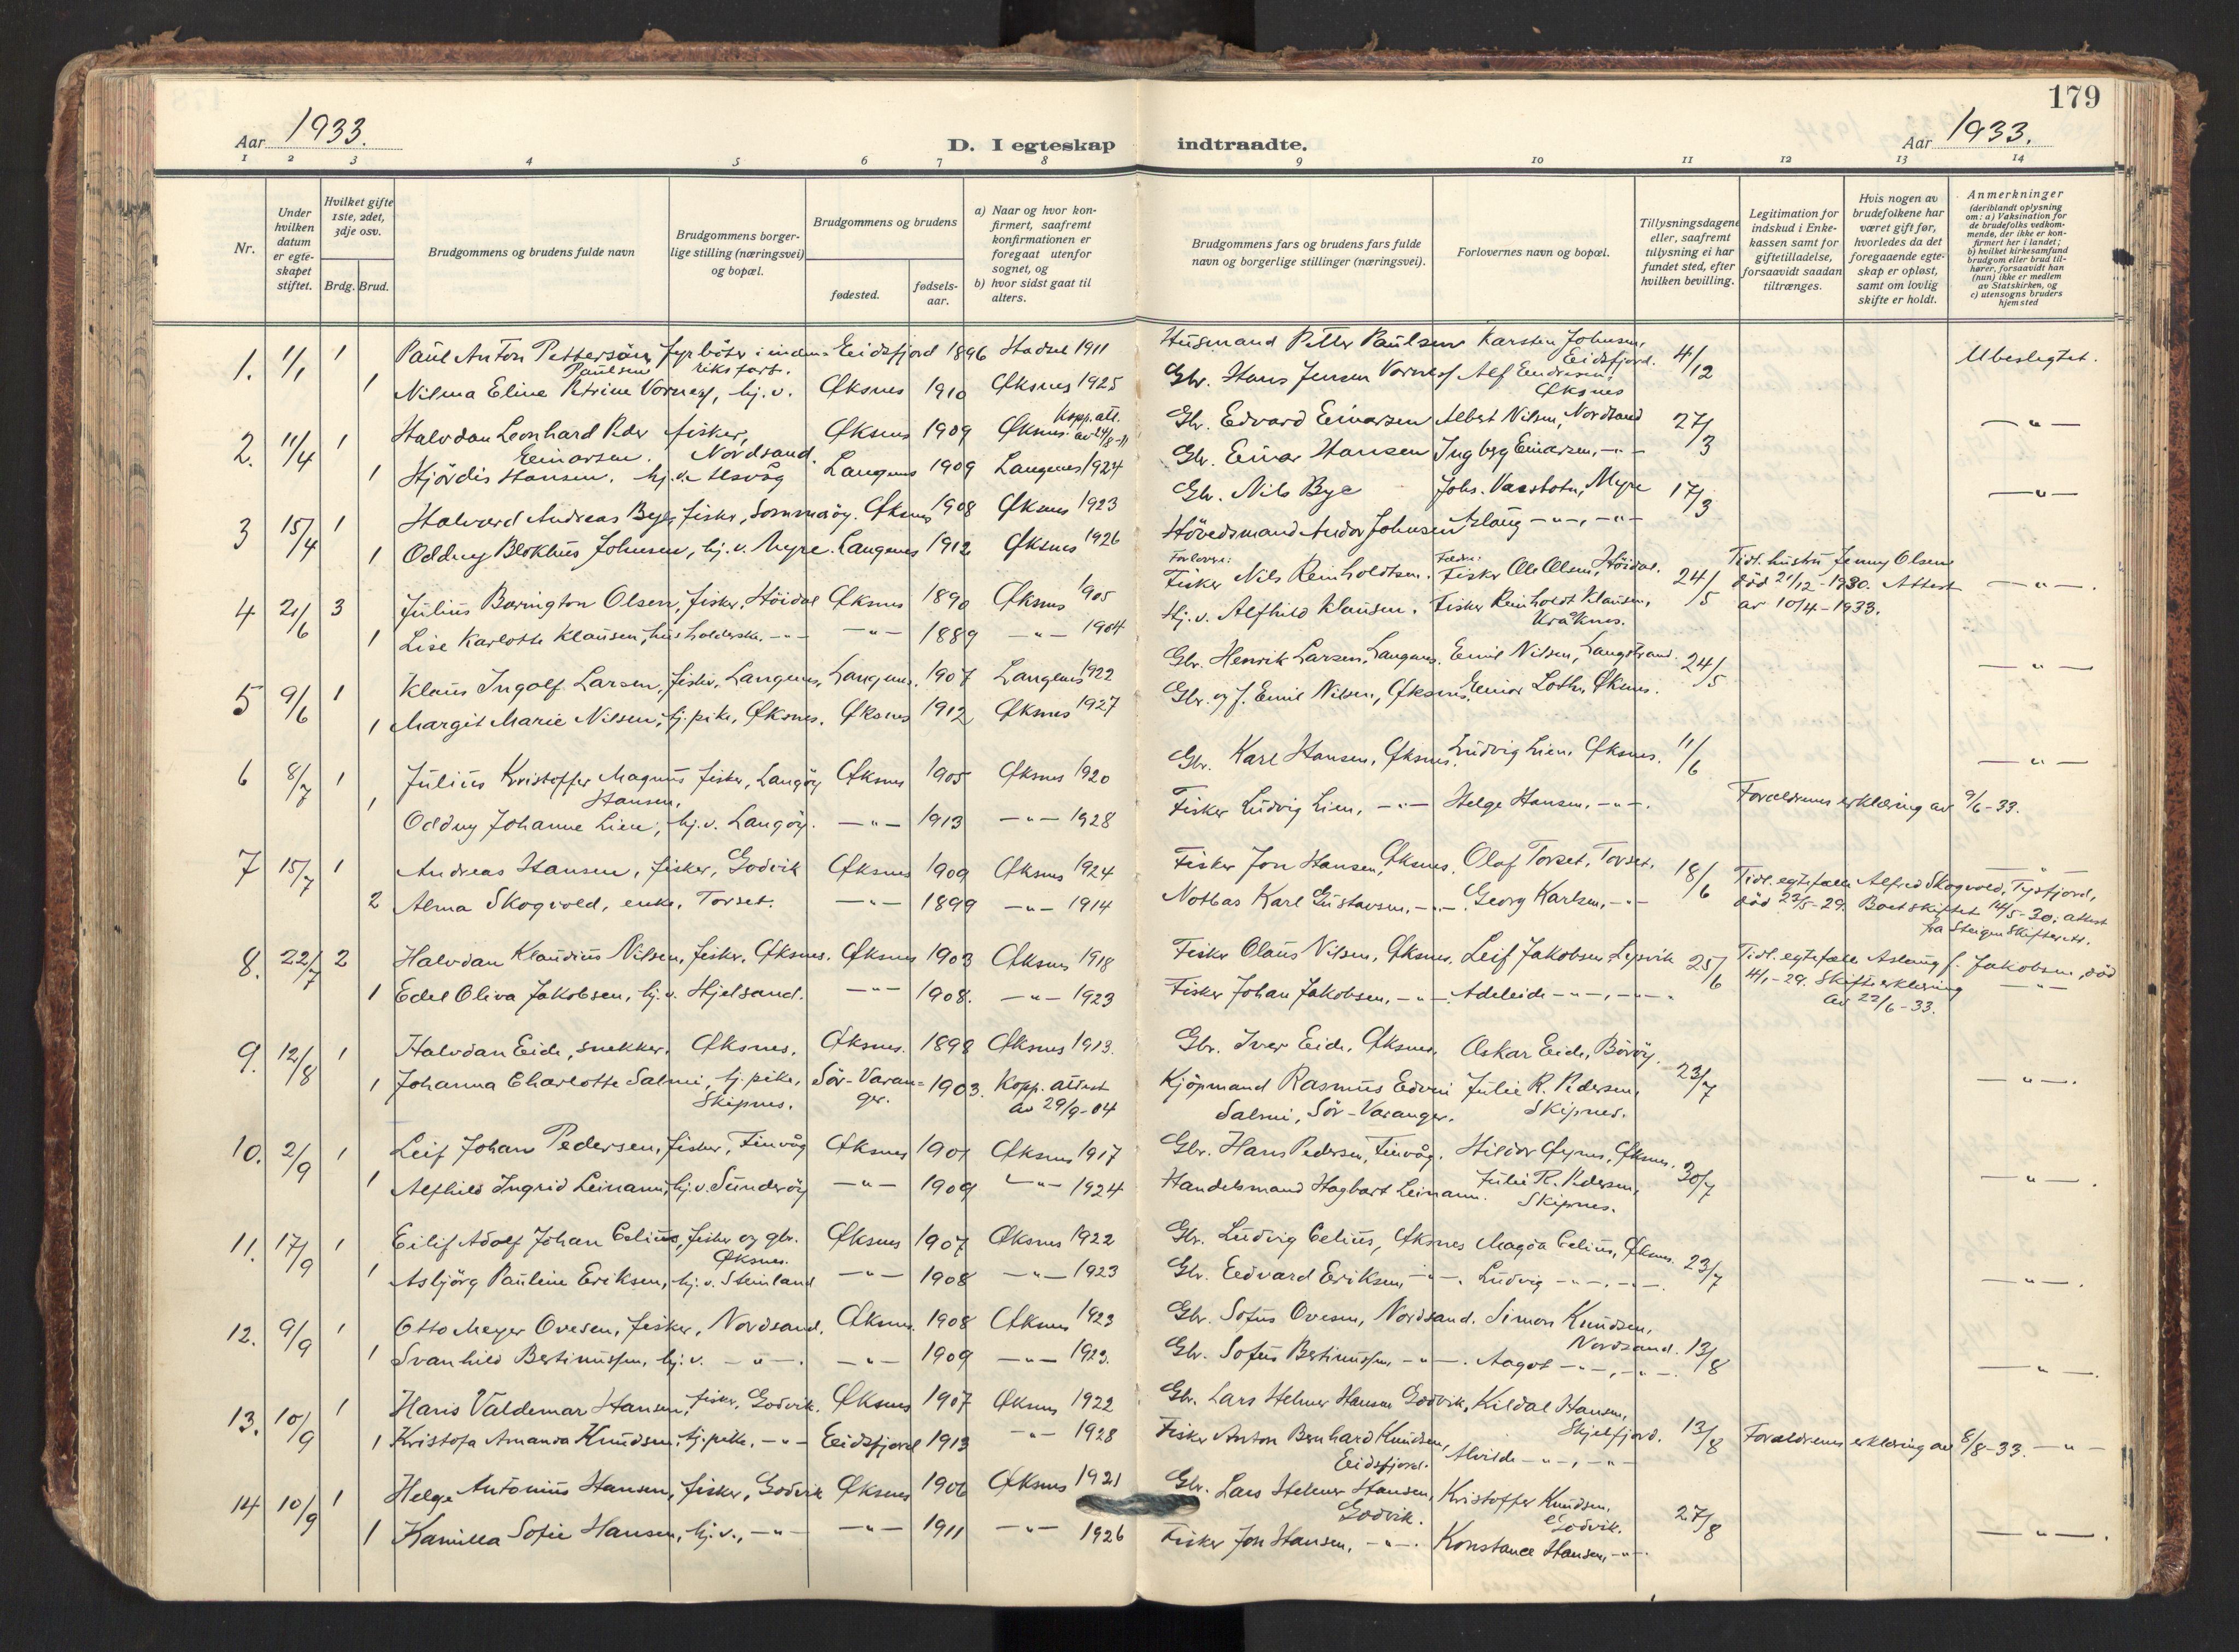 179
Aar 1933.
D. I egteskap indtraadte.
Aar 1933.
1 2 3 4 5 6 7 8 9 10 11 12 13 14
Nr.
Under hvilken datum er egteskapet stiftet.
Hvilket gifte 1ste, 2det, 3dje osv.
Brdg. Brud.
Brudgommens og brudens fulde navn
Brudgommens borgerlige stilling (næringsvei) og bopæl.
Brudgommens og brudens
fødested. fødselsaar.
a) Naar og hvor konfirmert, saafremt konfirmationen er foregaat utenfor sognet, og
b) hvor sidst gaat til alters.
Brudgommens fars og brudens fars fulde navn og borgerlige stillinger (næringsvei).
Forlovernes navn og bopæl.
Tillysningsdagene eller, saafremt tillysning ei har fundet sted, efter hvilken bevilling.
Legitimation for indskud i Enkekassen samt for giftetilladelse, forsaavidt saadan tiltrænges.
Hvis nogen av brudefolkene har været gift før, hvorledes da det foregaaende egteskap er opløst, samt om lovlig skifte er holdt.
Anmerkninger (deriblandt oplysning om: a) Vaksination for de brudefolks vedkommende, der ikke er konfirmert her i landet; b) hvilket kirkesamfund brudgom eller brud tilhører, forsaavidt han (hun) ikke er medlem av Statskirken, og c) utensogns bruders hjemsted
1. 11/1 1 Paul Anton Pettersön Paulsen, fyrböter i indenriksfart. Eidsfjord 1896 Hadsel 1911 Husmand Petter Paulsen Karsten Johnsen, Eidsfjord. 4/12 Ubeslegtet.
1 Nilma Eline Petrine Vornes, hj.v. Øksnes 1910 Øksnes 1925 Gbr. Hans Jensen Vornes Alf Endresen, Øksnes
2. 11/4 1 Halvdan Leonhard Peder Einarsen. fisker, Nordsand. Øksnes 1909 Øksnes. Kopp.att. av 24/8-11 Gbr. Edvard Einarsen Albert Nilsen, Nordsand 27/3 — " —
1 Hjördis Hansen. hj.v. Alsvåg Langenes 1909 Langenes 1924 Gbr. Einar Hansen Ingbrg Einarsen, — " —
3 15/4 1 Halvard Andreas Bye, fisker, Sommeröy. Øksnes 1908 Øksnes 1923 Gbr. Nils Bye Johs. Vassbotn, Myre 17/3 — " —
1 Oddny Blokhus Johnsen, hj.v. Myre. Langenes 1912 Øksnes 1926 Hövedsmand Andor Johnsen Aslaug — " —, — " —
4 21/6 3 Julius Barington Olsen, fisker, Höidal Øksnes 1890 Øksnes 1905 Forlovere: Fisker Nils Reinholdtsen. Fedre: Fisker Ole Olsen, Höidal. 24/5 Tidl. hustru Jenny Olsen död 21/12-1930. Attest av 10/4-1933. — " —.
1 Lise Karlotte Klausen, husholderske. — " — — " — 1889 — " — 1904 Hj.v. Alfhild Klausen. Fisker Reinholdt Klausen, Kråknes.
5 9/6 1 Klaus Ingolf Larsen, fisker, Langenes, Langenes. 1907 Langenes 1922 Gbr. Henrik Larsen, Langenes. Emil Nilsen, Langstrand. 24/5 — " —
1 Margit Marie Nilsen, hj.pike, Øksnes. Øksnes 1912 Øksnes 1927 Gbr. og f. Emil Nilsen, Øksnes. Einar Loths, Øksnes.
6 8/7 1 Julius Kristoffer Magnus Hansen, fisker, Langöy Øksnes 1905 Øksnes 1920 Gbr. Karl Hansen, Øksnes. Ludvig Lien, Øksnes. 11/6 — " —
1 Oddny Johanne Lien, hj.v. Langöy. — " — 1913 — " — 1928 Fisker Ludvig Lien, — " — Helge Hansen, — " —. Forældrenes erklæring av 9/6-33.
7 15/7 1 Andreas Hansen, fisker, Godvik Øksnes 1909 Øksnes 1924 Fisker Jon Hansen, Øksnes. Olaf Torset, Torset. 18/6 Tidl. egtefælle Alfred Skogvold, Tysfjord, död 22/5-29. Boet skiftet 14/5-30; attest fra Steigen Skifterett. — " —
2 Alma Skogvold, enke, Torset. — " — 1899 — " — 1914 Notbas Karl Gustavsen, — " — Georg Karlsen, — " —
8. 22/7 2 Halvdan Klaudius Nilsen, fisker, Øksnes. Øksnes 1903 Øksnes 1918 Fisker Olaus Nilsen, Øksnes. Leif Jakobsen, Lysvik 25/6 Tidl. egtefælle Aslaug f. Jakobsen, död 4/1-29. Skifteerklæring av 22/6-33. — " —
1 Edel Oliva Jakobsen, hj.v. Hjelsand. — " — 1908. — " — 1923 Fisker Johan Jakobsen, — " —. Adeleide — " —, — " —.
9. 12/8 1 Halvdan Eide, snekker, Øksnes, Øksnes. 1898 Øksnes 1913. Gbr. Iver Eide, Øksnes. Oskar Eide, Böröy. 23/7 — " —.
1 Johanna Charlotte Salmi, hj.pike, Skipnes. Sör-Varanger. 1903. Kopp.attest av 29/9-04 Kjöpmand Rasmus Edvin Salmi, Sör-Varanger. Julie R. Pedersen, Skipnes.
10. 2/9 1 Leif Johan Pedersen, fisker, Finvåg Øksnes 1901 Øksnes 1917 Gbr. Hans Pedersen, Finvåg. Hildor Øynes, Øksnes. 30/7 — " —.
1 Alfhild Ingrid Leinann, hj.v. Sunderöy — " — 1909 — " — 1924 Handelsmand Hagbart Leinann. Julie R. Pedersen, Skipnes.
11. 17/9 1 Eilif Adolf Johan Celius, fisker og gbr. Øksnes. Øksnes 1907 Øksnes 1922 Gbr. Ludvig Celius, Øksnes Magda Celius, Øksnes. 23/7 — " —.
1 Asbjörg Pauline Eriksen, hj.v. Steinland — " — 1908 — " — 1923 Gbr. Edvard Eriksen, — " —. Ludvig — " —, — " —.
12. 9/9 1 Otto Meyer Ovesen, fisker, Nordsand. Øksnes. 1908 Øksnes 1923 Gbr. Sofus Ovesen, Nordsand. Simon Knudsen, Nordsand. 13/8 — " —.
1 Svanhild Bertinussen, hj.v. — " —. — " — 1909 — " — 1923. Gbr. Sofus Bertinussen — " —. Aagot — " —, — " —.
13. 10/9 1 Haris Valdemar Hansen, fisker, Godvik. Øksnes 1907 Øksnes 1922 Gbr. Lars Helmer Hansen Godvik, Kildal Hansen, Skjelfjord. 13/8 Forældrenes erklæring av 8/8-33. — " —
1 Kristofa Amanda Knudsen, hj.pike, — " — Eidsfjord 1913 — " — 1928 Fisker Anton Bernhard Knudsen, Eidsfjord. Alvilde — " —, — " —
14 10/9 1 Helge Antonius Hansen, fisker, Godvik Øksnes 1906 Øksnes 1921 Gbr. Lars Helmer Hansen, Godvik. Kristoffer Knudsen, Godvik. 27/8 — " —.
1 Kamilla Sofie Hansen, hj.v., — " — — " — 1911 — " — 1926 Fisker Jon Hansen, — " —. Konstance Hansen, — " —.